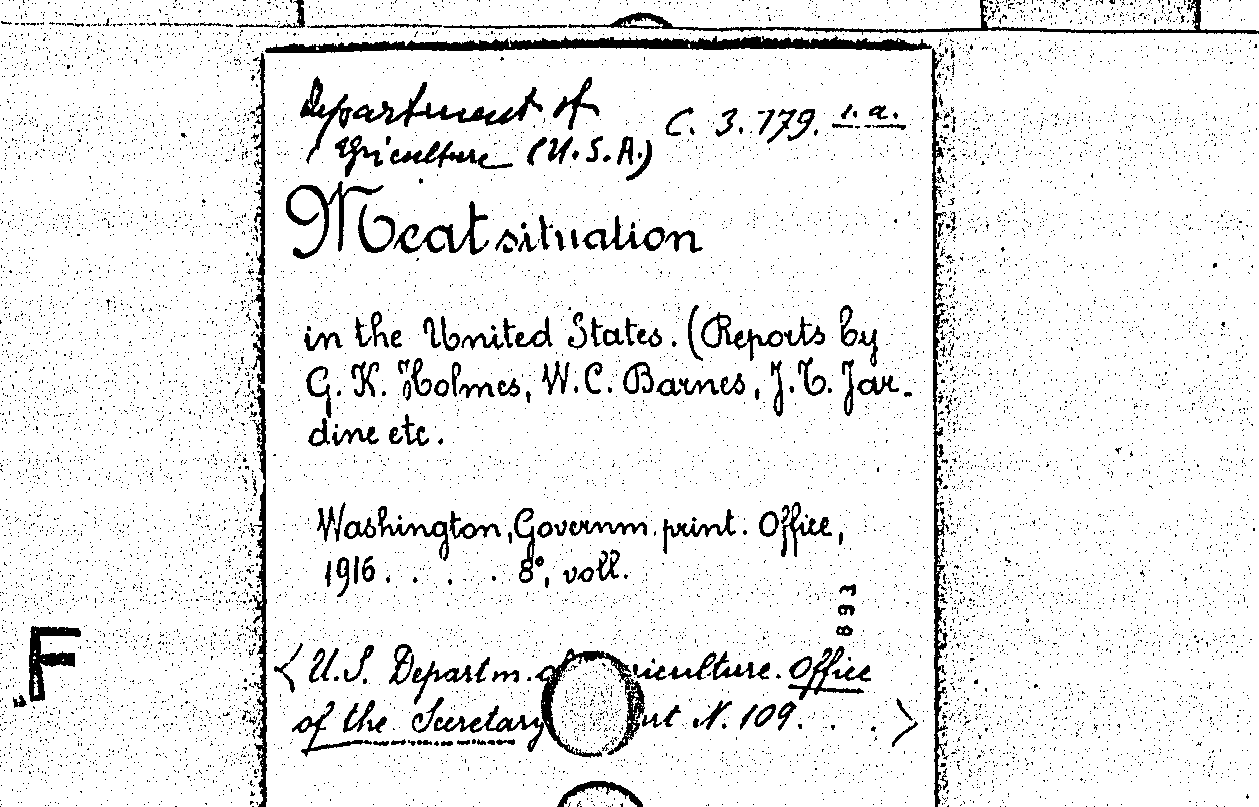 Department of
Agriculture (U.S.A.) C. 3. 779. i. a.
Meat situation
in the United States. (Reports by
G. K. Holmes, W. C. Barnes, J. T. Jar-
dine etc.
Washington, Governm. print. Office,
1916. . . . 8°, voll.
893
< U.S. Departm. riculture. Office
of the Secretary N. 109. . . >
F